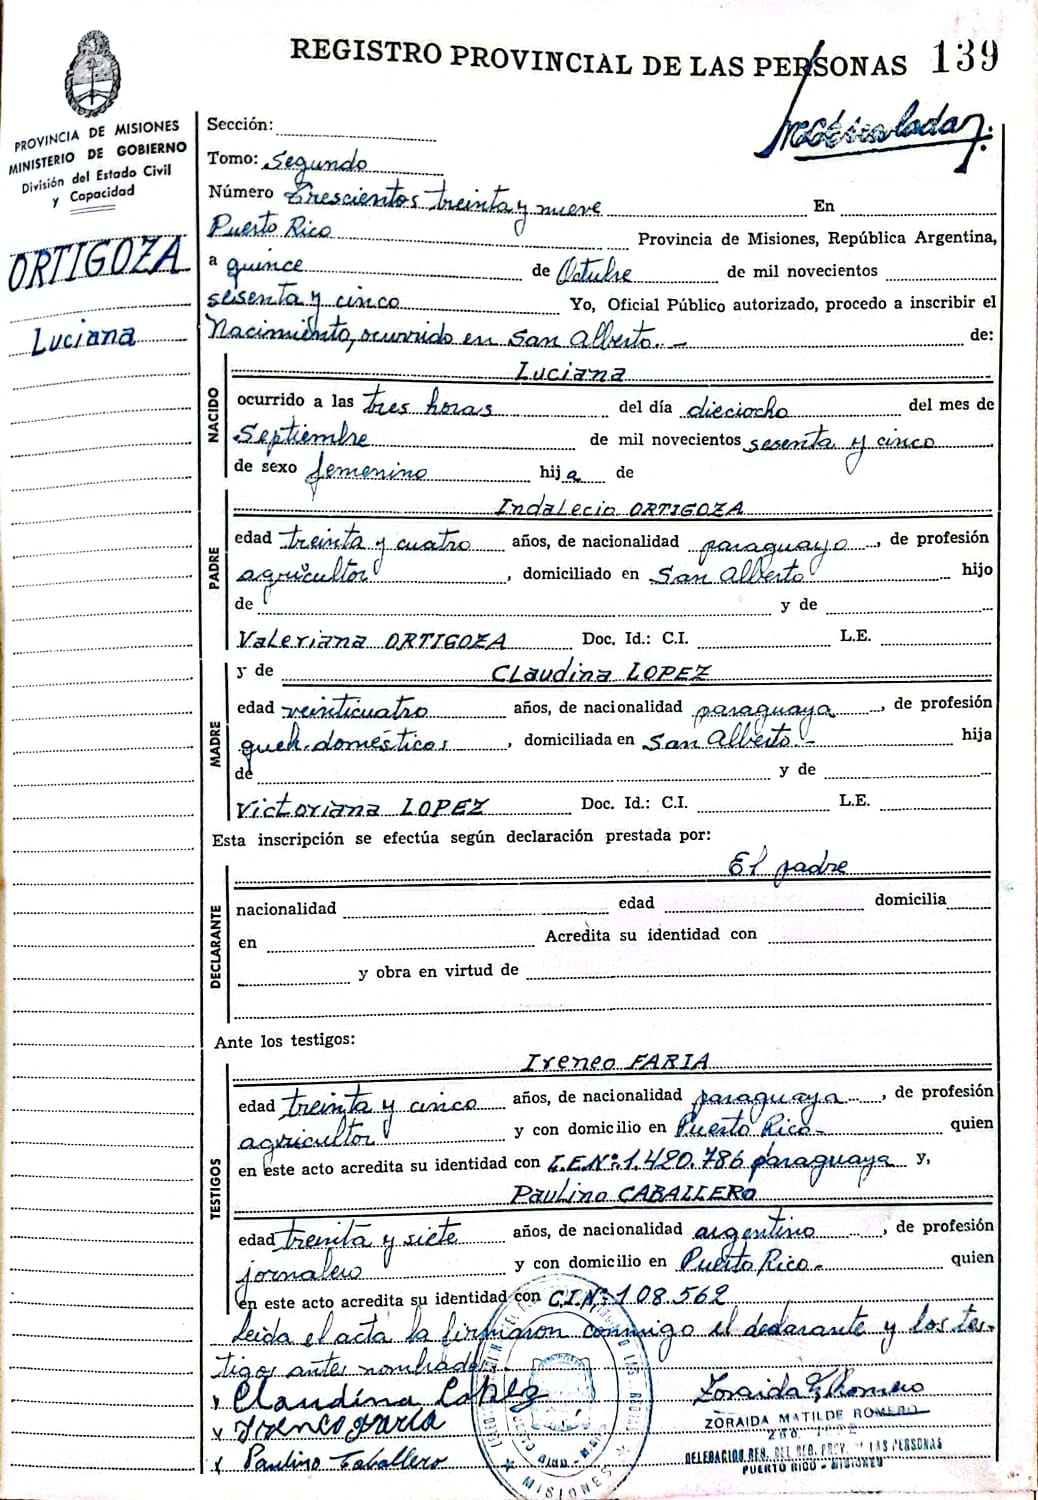 REGISTRO PROVINCIAL DE LAS PERSONAS 139
PROVINCIA DE MISIONES
MINISTERIO DE GOBIERNO
División del Estado Civil
y Capacidad
ORTIGOZA
Luciana
Sección:
Tomo: Segundo
Número Trescientos treinta y nueve En
Puerto Rico Provincia de Misiones, República Argentina,
a quince de Octubre de mil novecientos
sesenta y cinco Yo, Oficial Público autorizado, procedo a inscribir el
Nacimiento, ocurrido en San Alberto.- de:
NACIDO
Luciana
ocurrido a las tres horas del día dieciocho del mes de
Septiembre de mil novecientos sesenta y cinco
de sexo femenino hija de
PADRE
Indalecio ORTIGOZA
edad treinta y cuatro años, de nacionalidad paraguayo, de profesión
agricultor, domiciliado en San Alberto hijo
de y de
Valeriana ORTIGOZA Doc. Id.: C.I. L.E.
MADRE
y de Claudina LOPEZ
edad veinticuatro años, de nacionalidad paraguaya, de profesión
queh. domésticos, domiciliada en San Alberto.- hija
de y de
Victoriana LOPEZ Doc. Id.: C.I. L.E.
Esta inscripción se efectúa según declaración prestada por:
DECLARANTE
El padre
nacionalidad edad domicilia
en Acredita su identidad con
y obra en virtud de
Ante los testigos:
TESTIGOS
Ireneo FARIA
edad treinta y cinco años, de nacionalidad paraguaya, de profesión
agricultor y con domicilio en Puerto Rico- quien
en este acto acredita su identidad con C.E.Nº:1.420.786 paraguaya y,
Paulino CABALLERO
edad treinta y siete años, de nacionalidad argentino, de profesión
jornalero y con domicilio en Puerto Rico.- quien
en este acto acredita su identidad con C.I.Nº:108.562
Leida el acta la firmaron conmigo el declarante y los tes-
tigos antes nombrados.
x Claudina Lopez
x Ireneo Faria
x Paulino Caballero
Zoraida M Romero
ZORAIDA MATILDE ROMERO
DELEGACION REG. DEL REG. PROV. DE LAS PERSONAS
PUERTO RICO - MISIONES
MISIONES